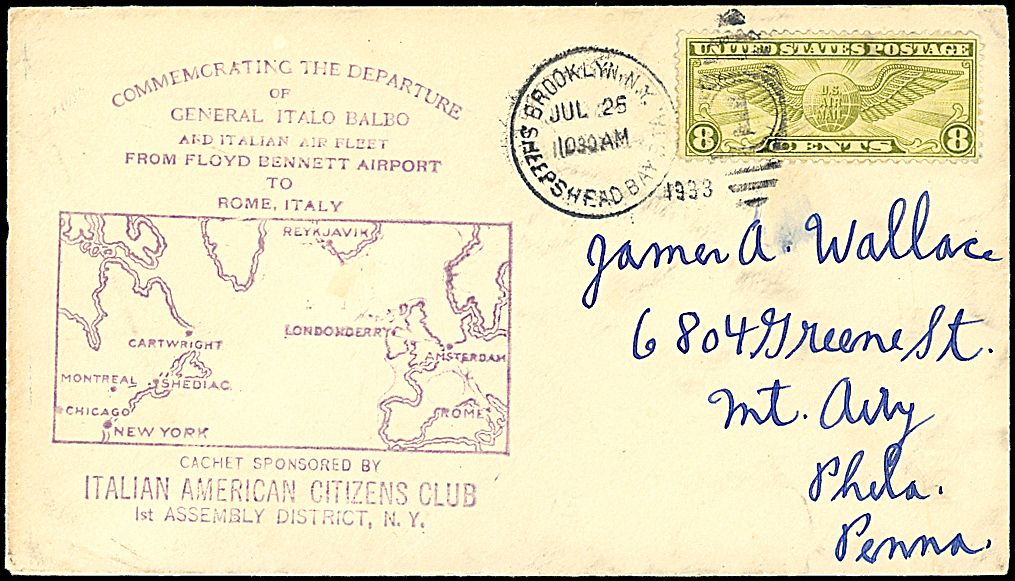 COMMEMORATING THE DEPARTURE
OF
GENERAL ITALO BALBO
AND ITALIAN AIR FLEET
FROM FLOYD BENNETT AIRPORT
TO
ROME, ITALY
REYKJAVIK
LONDONDERRY
CARTWRIGHT
AMSTERDAM
MONTREAL
SHEDIAC
CHICAGO
ROME
NEW YORK
CACHET SPONSORED BY
ITALIAN AMERICAN CITIZENS CLUB
1st ASSEMBLY DISTRICT, N.Y.
BROOKLYN, N.Y.
JUL 25
1030 AM
SHEEPSHEAD BAY STA.
1933
UNITED STATES POSTAGE
U.S.
AIR
MAIL
8 CENTS 8
James A. Wallace
6804 Greene St.
Mt. Airy
Phila.
Penna.